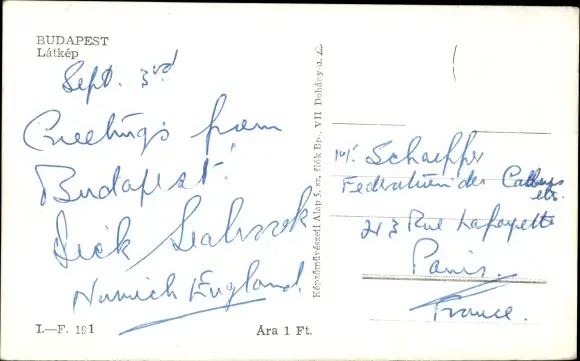 BUDAPEST
Látkép
Sept. 3rd
Greetings from
Budapest!
Dick
Norwich England.
I.—F. 191
Ára 1 Ft.
Képzőművészeti Alap 5. sz. fiók Bp., VII Dohány u. 22
Mr. Schaeffer
Federation des
etc.
213 Rue Lafayette
Paris.
France.